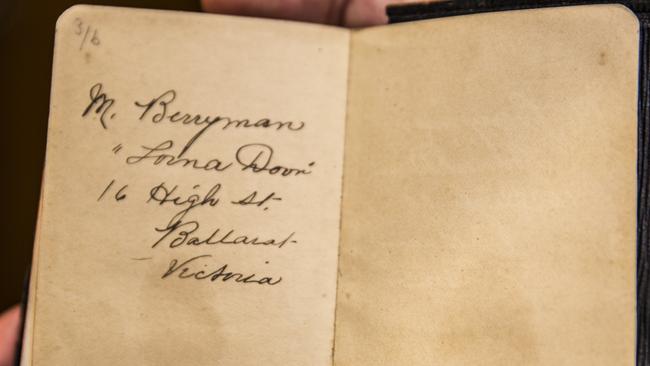 3/6
M. Berryman
"Lorna Doon"
16 High St.
Ballarat
Victoria